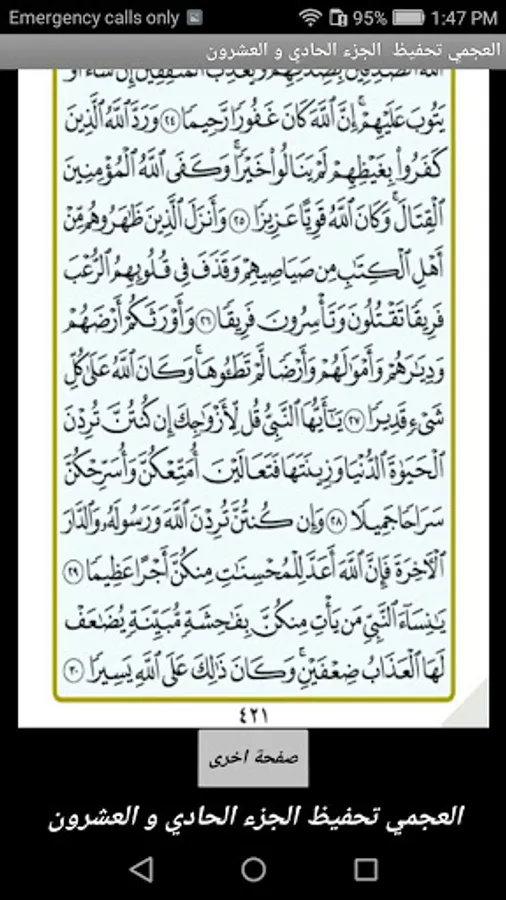 Emergency calls only 95% 1:47 PM
العجمي تحفيظ الجزء الحادي و العشرون
ٱللَّهُ ٱلصَّٰدِقِينَ بِصِدْقِهِمْ وَيُعَذِّبَ ٱلْمُنَٰفِقِينَ إِن شَآءَ أَوْ
يَتُوبَ عَلَيْهِمْ ۚ إِنَّ ٱللَّهَ كَانَ غَفُورًا رَّحِيمًا ٢٤ وَرَدَّ ٱللَّهُ ٱلَّذِينَ
كَفَرُوا۟ بِغَيْظِهِمْ لَمْ يَنَالُوا۟ خَيْرًا ۚ وَكَفَى ٱللَّهُ ٱلْمُؤْمِنِينَ
ٱلْقِتَالَ ۚ وَكَانَ ٱللَّهُ قَوِيًّا عَزِيزًا ٢٥ وَأَنزَلَ ٱلَّذِينَ ظَٰهَرُوهُم مِّنْ
أَهْلِ ٱلْكِتَٰبِ مِن صَيَاصِيهِمْ وَقَذَفَ فِى قُلُوبِهِمُ ٱلرُّعْبَ
فَرِيقًا تَقْتُلُونَ وَتَأْسِرُونَ فَرِيقًا ٢٦ وَأَوْرَثَكُمْ أَرْضَهُمْ
وَدِيَٰرَهُمْ وَأَمْوَٰلَهُمْ وَأَرْضًا لَّمْ تَطَـُٔوهَا ۚ وَكَانَ ٱللَّهُ عَلَىٰ كُلِّ
شَىْءٍ قَدِيرًا ٢٧ يَٰٓأَيُّهَا ٱلنَّبِىُّ قُل لِّأَزْوَٰجِكَ إِن كُنتُنَّ تُرِدْنَ
ٱلْحَيَوٰةَ ٱلدُّنْيَا وَزِينَتَهَا فَتَعَالَيْنَ أُمَتِّعْكُنَّ وَأُسَرِّحْكُنَّ
سَرَاحًا جَمِيلًا ٢٨ وَإِن كُنتُنَّ تُرِدْنَ ٱللَّهَ وَرَسُولَهُۥ وَٱلدَّارَ
ٱلْءَاخِرَةَ فَإِنَّ ٱللَّهَ أَعَدَّ لِلْمُحْسِنَٰتِ مِنكُنَّ أَجْرًا عَظِيمًا ٢٩
يَٰنِسَآءَ ٱلنَّبِىِّ مَن يَأْتِ مِنكُنَّ بِفَٰحِشَةٍ مُّبَيِّنَةٍ يُضَٰعَفْ
لَهَا ٱلْعَذَابُ ضِعْفَيْنِ ۚ وَكَانَ ذَٰلِكَ عَلَى ٱللَّهِ يَسِيرًا ٣٠
٤٢١
صفحة اخرى
العجمي تحفيظ الجزء الحادي و العشرون